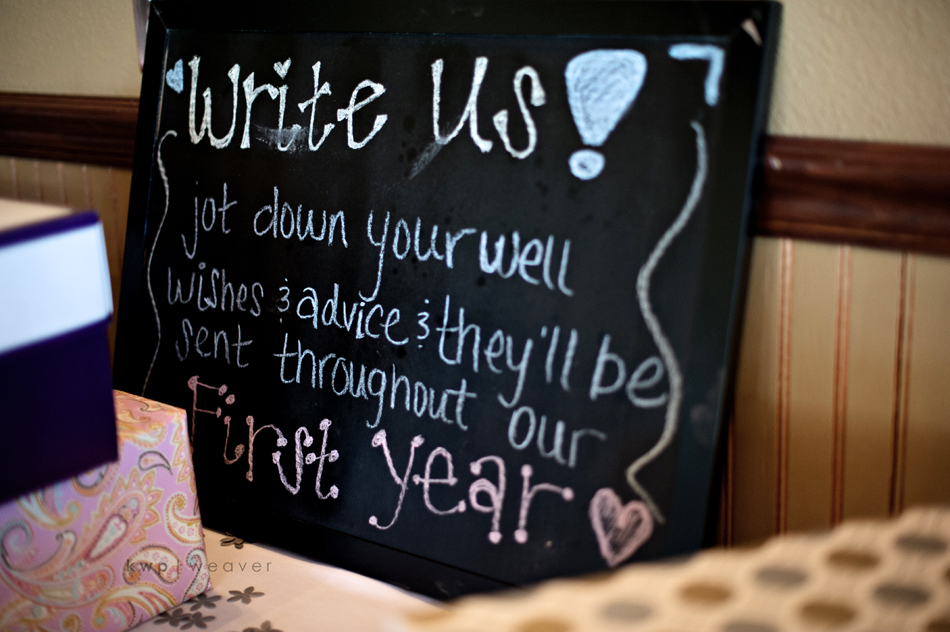 write us!
jot down your well
wishes & advice & they'll be
sent throughout our
First year
kwp | weaver